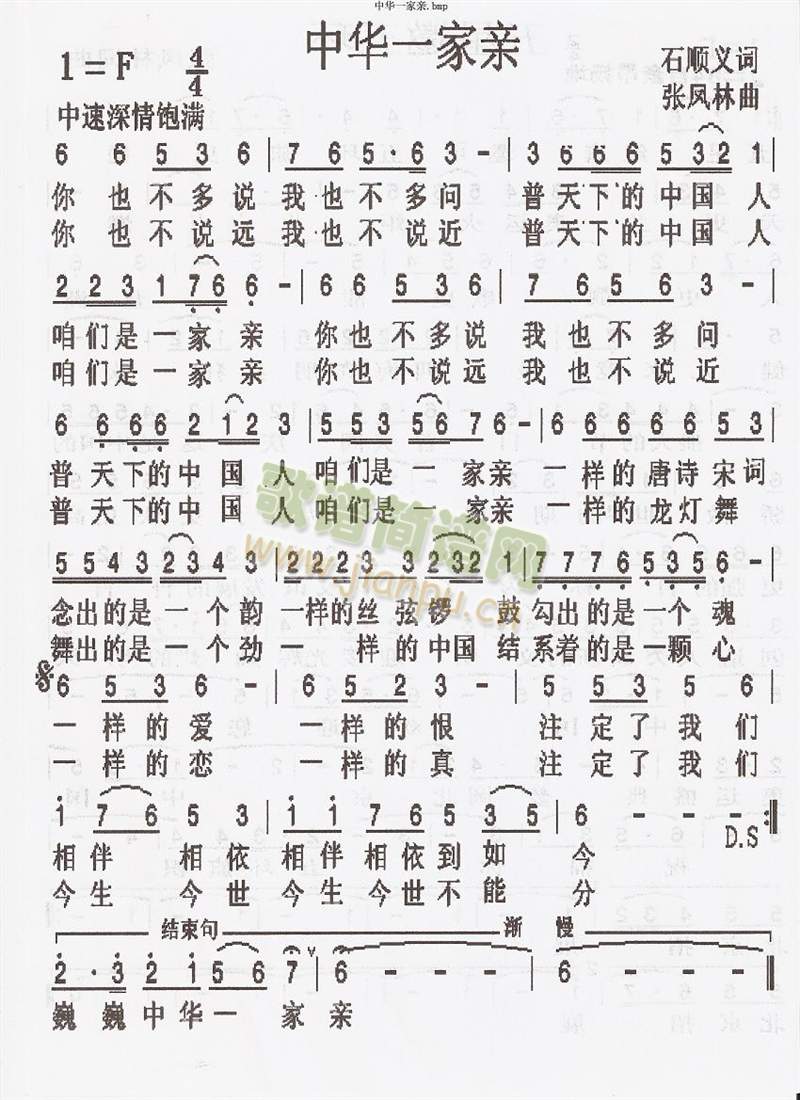 中华一家亲.bmp
中华一家亲
1=F 4/4
石顺义词
张凤林曲
中速深情饱满
6 6 5 3 6 | 7 6 5·6 3 - | 3 6 6 6 5 3 2 1 |
你也不多说我也不多问 普天下的中国人
你也不说远我也不说近 普天下的中国人
2 2 3 1 7 6 6 - | 6 6 5 3 6 | 7 6 5 6 3 - |
咱们是一家亲 你也不多说 我也不多问
咱们是一家亲 你也不说远 我也不说近
6 6 6 6 2 1 2 3 | 5 5 5 3 5 6 7 6 - | 6 6 6 6 7 6 5 3 |
普天下的中国人 咱们是一家亲 一样的唐诗宋词
普天下的中国人 咱们是一家亲 一样的龙灯舞
5 5 4 3 2 3 4 3 | 2 2 2 3 2 3 2 1 | 7 7 7 6 5 3 5 6 - |
念出的是一个韵 一样的丝弦锣鼓勾出的是一个魂
舞出的是一个劲 一样的中国结系着的是一颗心
6 5 3 6 - | 6 5 2 3 - | 5 5 3 5 6 |
一样的爱 一样的恨 注定了我们
一样的恋 一样的真 注定了我们
1 7 6 5 3 | 1 1 7 6 5 3 5 | 6 - - :||
D.S
相伴 相依 相伴相依到如 今
今生 今世 今生今世不能 分
结束句 渐 慢
2·3 2 1 5 6 7 | 6 - - - | 6 - - - ||
巍巍中华一 家亲
歌谱简谱网
www.jianpu.cn